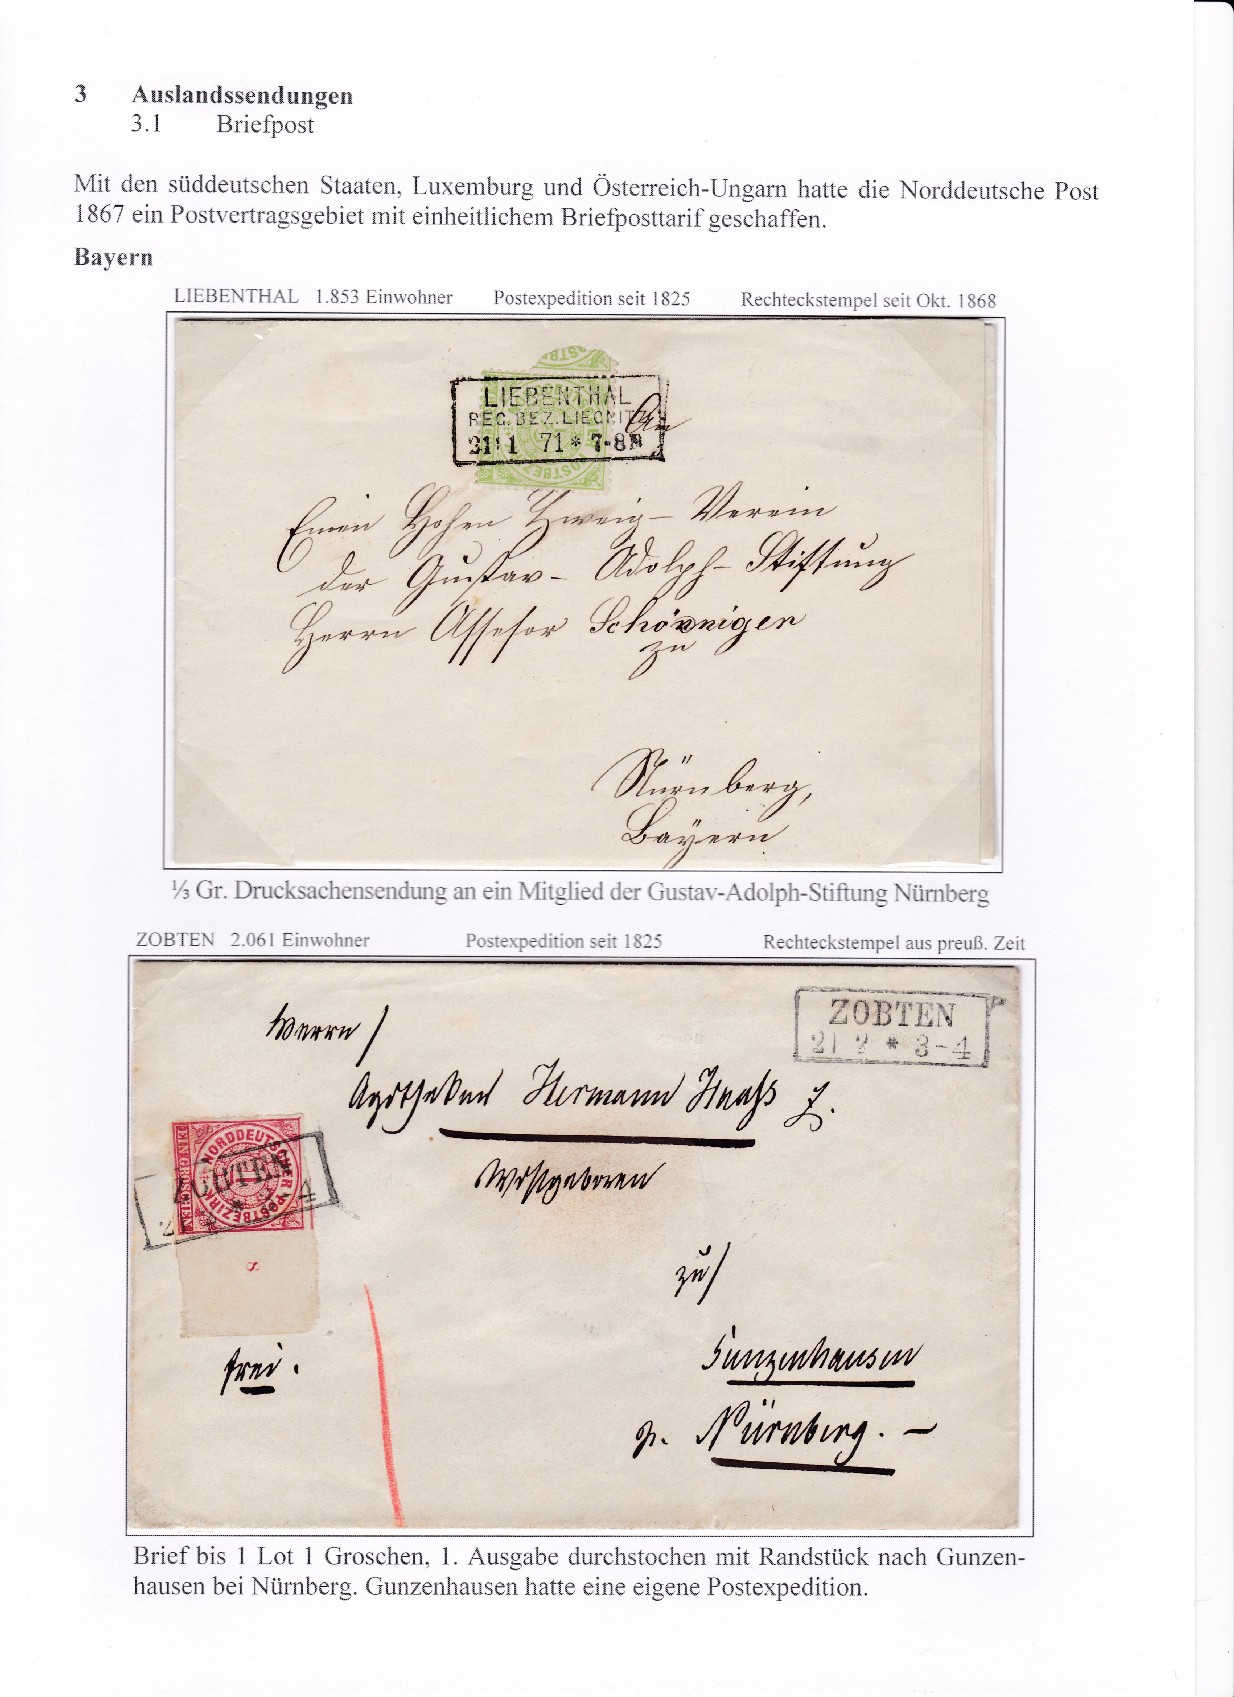 3 Auslandssendungen
3.1 Briefpost
Mit den süddeutschen Staaten, Luxemburg und Österreich-Ungarn hatte die Norddeutsche Post
1867 ein Postvertragsgebiet mit einheitlichem Briefposttarif geschaffen.
Bayern
LIEBENTHAL 1.853 Einwohner Postexpedition seit 1825 Rechteckstempel seit Okt. 1868
LIEBENTHAL
REG. BEZ. LIEGNITZ
71 * 7-8
An
Einen Hohen Zweig-Verein
der Gustav-Adolph-Stiftung
Herrn Assesor
zu
Nürnberg,
Bayern
⅓ Gr. Drucksachensendung an ein Mitglied der Gustav-Adolph-Stiftung Nürnberg
ZOBTEN 2.061 Einwohner Postexpedition seit 1825 Rechteckstempel aus preuß. Zeit
ZOBTEN
21 2 * 3-4
Herrn
Apotheker Hermann Haass
Wohlgeboren
NORDDEUTSCHER POSTBEZIRK
EIN GROSCHEN
ZOBTEN
8
zu
Gunzenhausen
frei.
p. Nürnberg. –
Brief bis 1 Lot 1 Groschen, 1. Ausgabe durchstochen mit Randstück nach Gunzen-
hausen bei Nürnberg. Gunzenhausen hatte eine eigene Postexpedition.